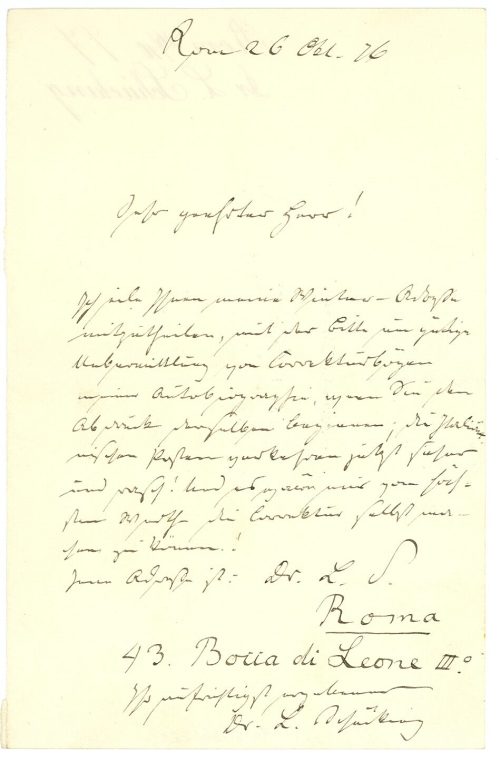 Rom 26 Okt. 76
Sehr geehrter Herr!
Ich eile Ihnen meine Winter-Adresse
mitzutheilen, mit der Bitte um gütige
Uebermittlung von Correkturbögen
meiner Autobiographie, wenn Sie den
Abdruck derselben beginnen; die Italie-
nischen Posten verkehren jetzt sicher
und rasch! Und es wäre mir vom höch-
sten Werth die Correktur selbst ma-
chen zu können.!
Jene Adresse ist: Dr. L. S.
Roma
43. Bocca di Leone III.°
Ihr aufrichtigst ergebener
Dr. L. Schücking